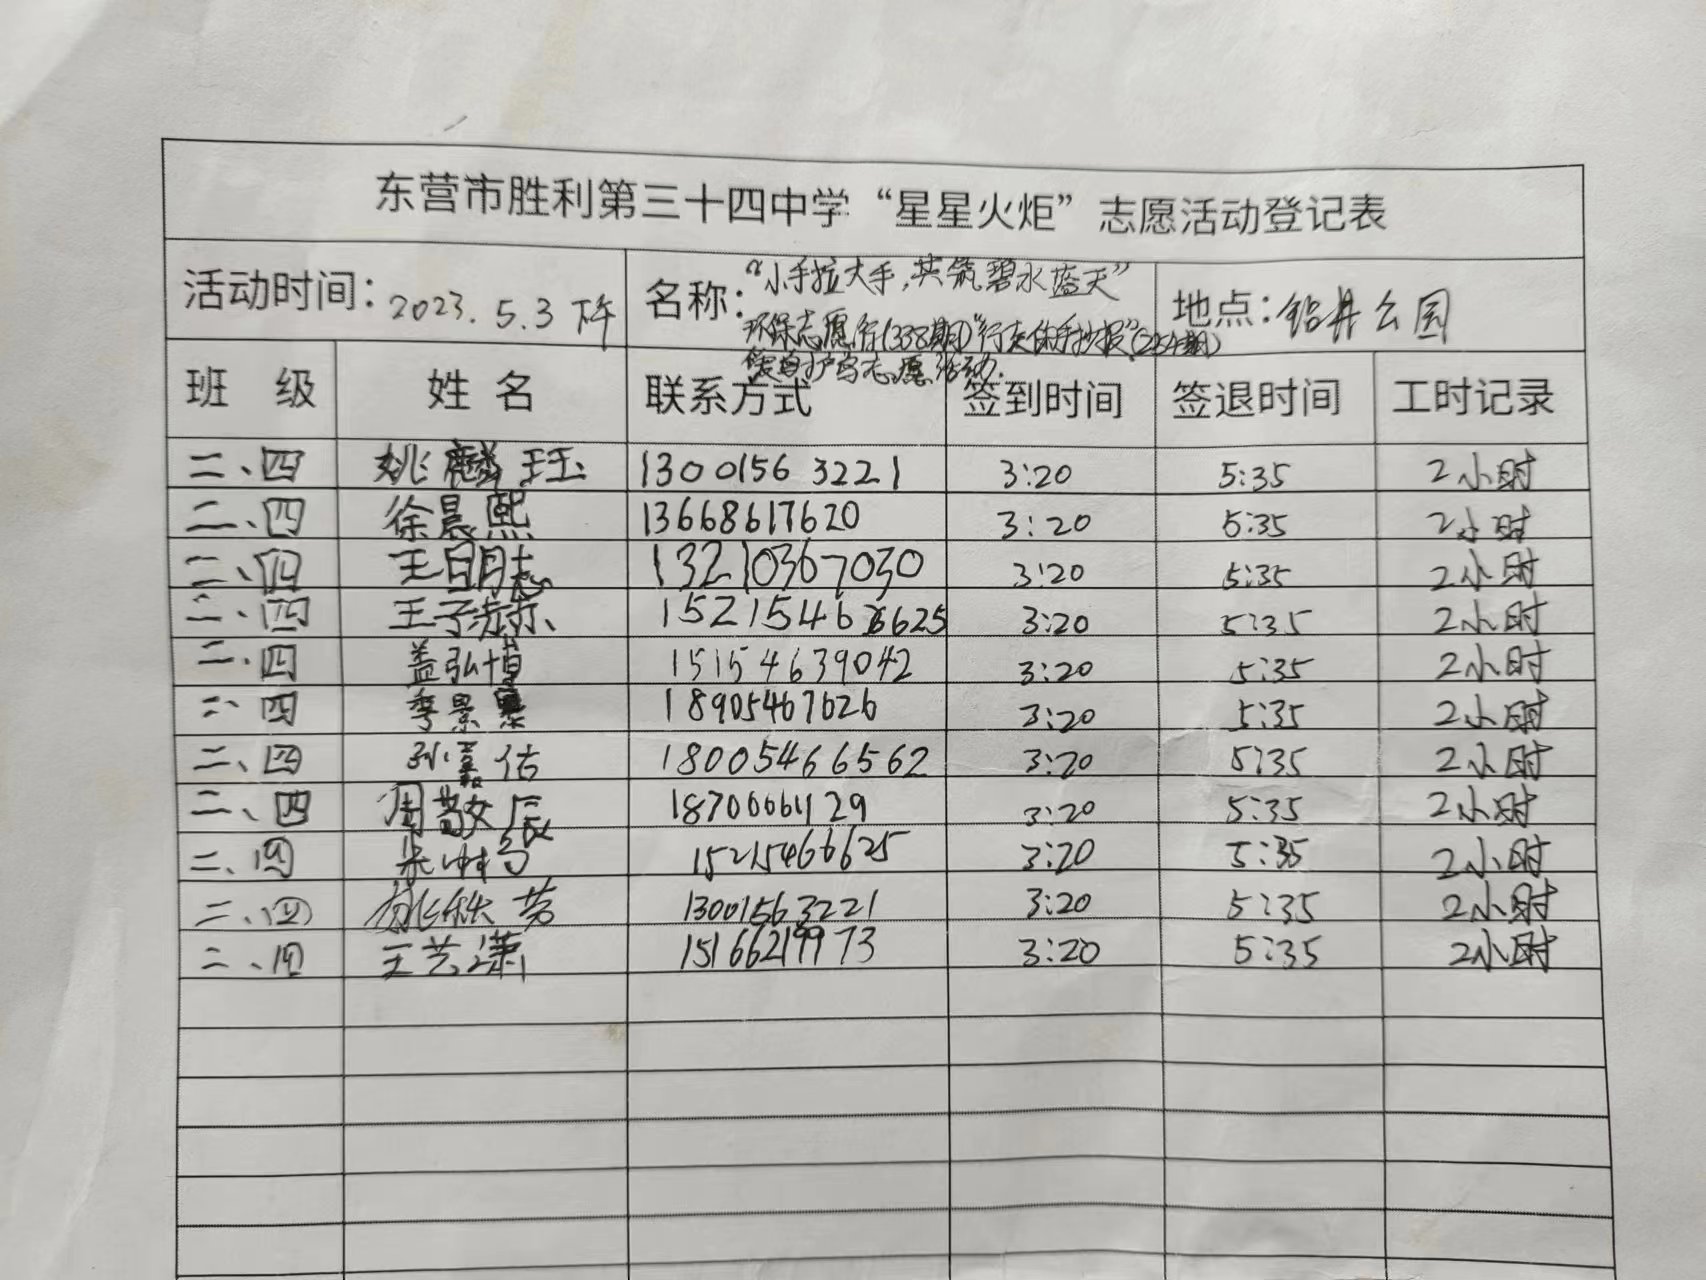 东营市胜利第三十四中学“星星火炬”志愿活动登记表
活动时间：2023.5.3 下午 名称：“小手拉大手，共筑碧水蓝天” 地点：钻井公园
环保志愿行(338期)
志愿活动.
班 级 姓 名 联系方式 签到时间 签退时间 工时记录
二、四 姚麟珏 13001563221 3:20 5:35 2小时
二、四 徐晨熙 13668617620 3:20 5:35 2小时
二、四 王明志 13210367030 3:20 5:35 2小时
二、四 王子赫 3:20 5:35 2小时
二、四 盖弘博 15154639042 3:20 5:35 2小时
二、四 李景 18905467626 3:20 5:35 2小时
二、四 孙嘉 18005466562 3:20 5:35 2小时
二、四 周敬辰 3:20 5:35 2小时
二、四 15215466625 3:20 5:35 2小时
二、四 姚秋 13001563221 3:20 5:35 2小时
二、四 王艺潇 3:20 5:35 2小时